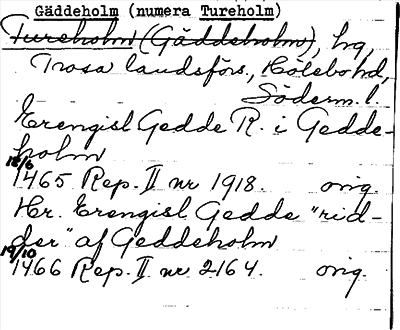 Gäddeholm (numera Tureholm)
Tureholm (Gäddeholm), hg,
Trosa landsförs., Hölebohd,
Söderm. l.
Erengisl Gedde R. i Gedde-
holm
12/6
1465 Rep. II nr 1918. orig
Hr. Erengisl Gedde "rid-
der" af Geddeholm
19/10
1466 Rep. II nr 2164. orig.